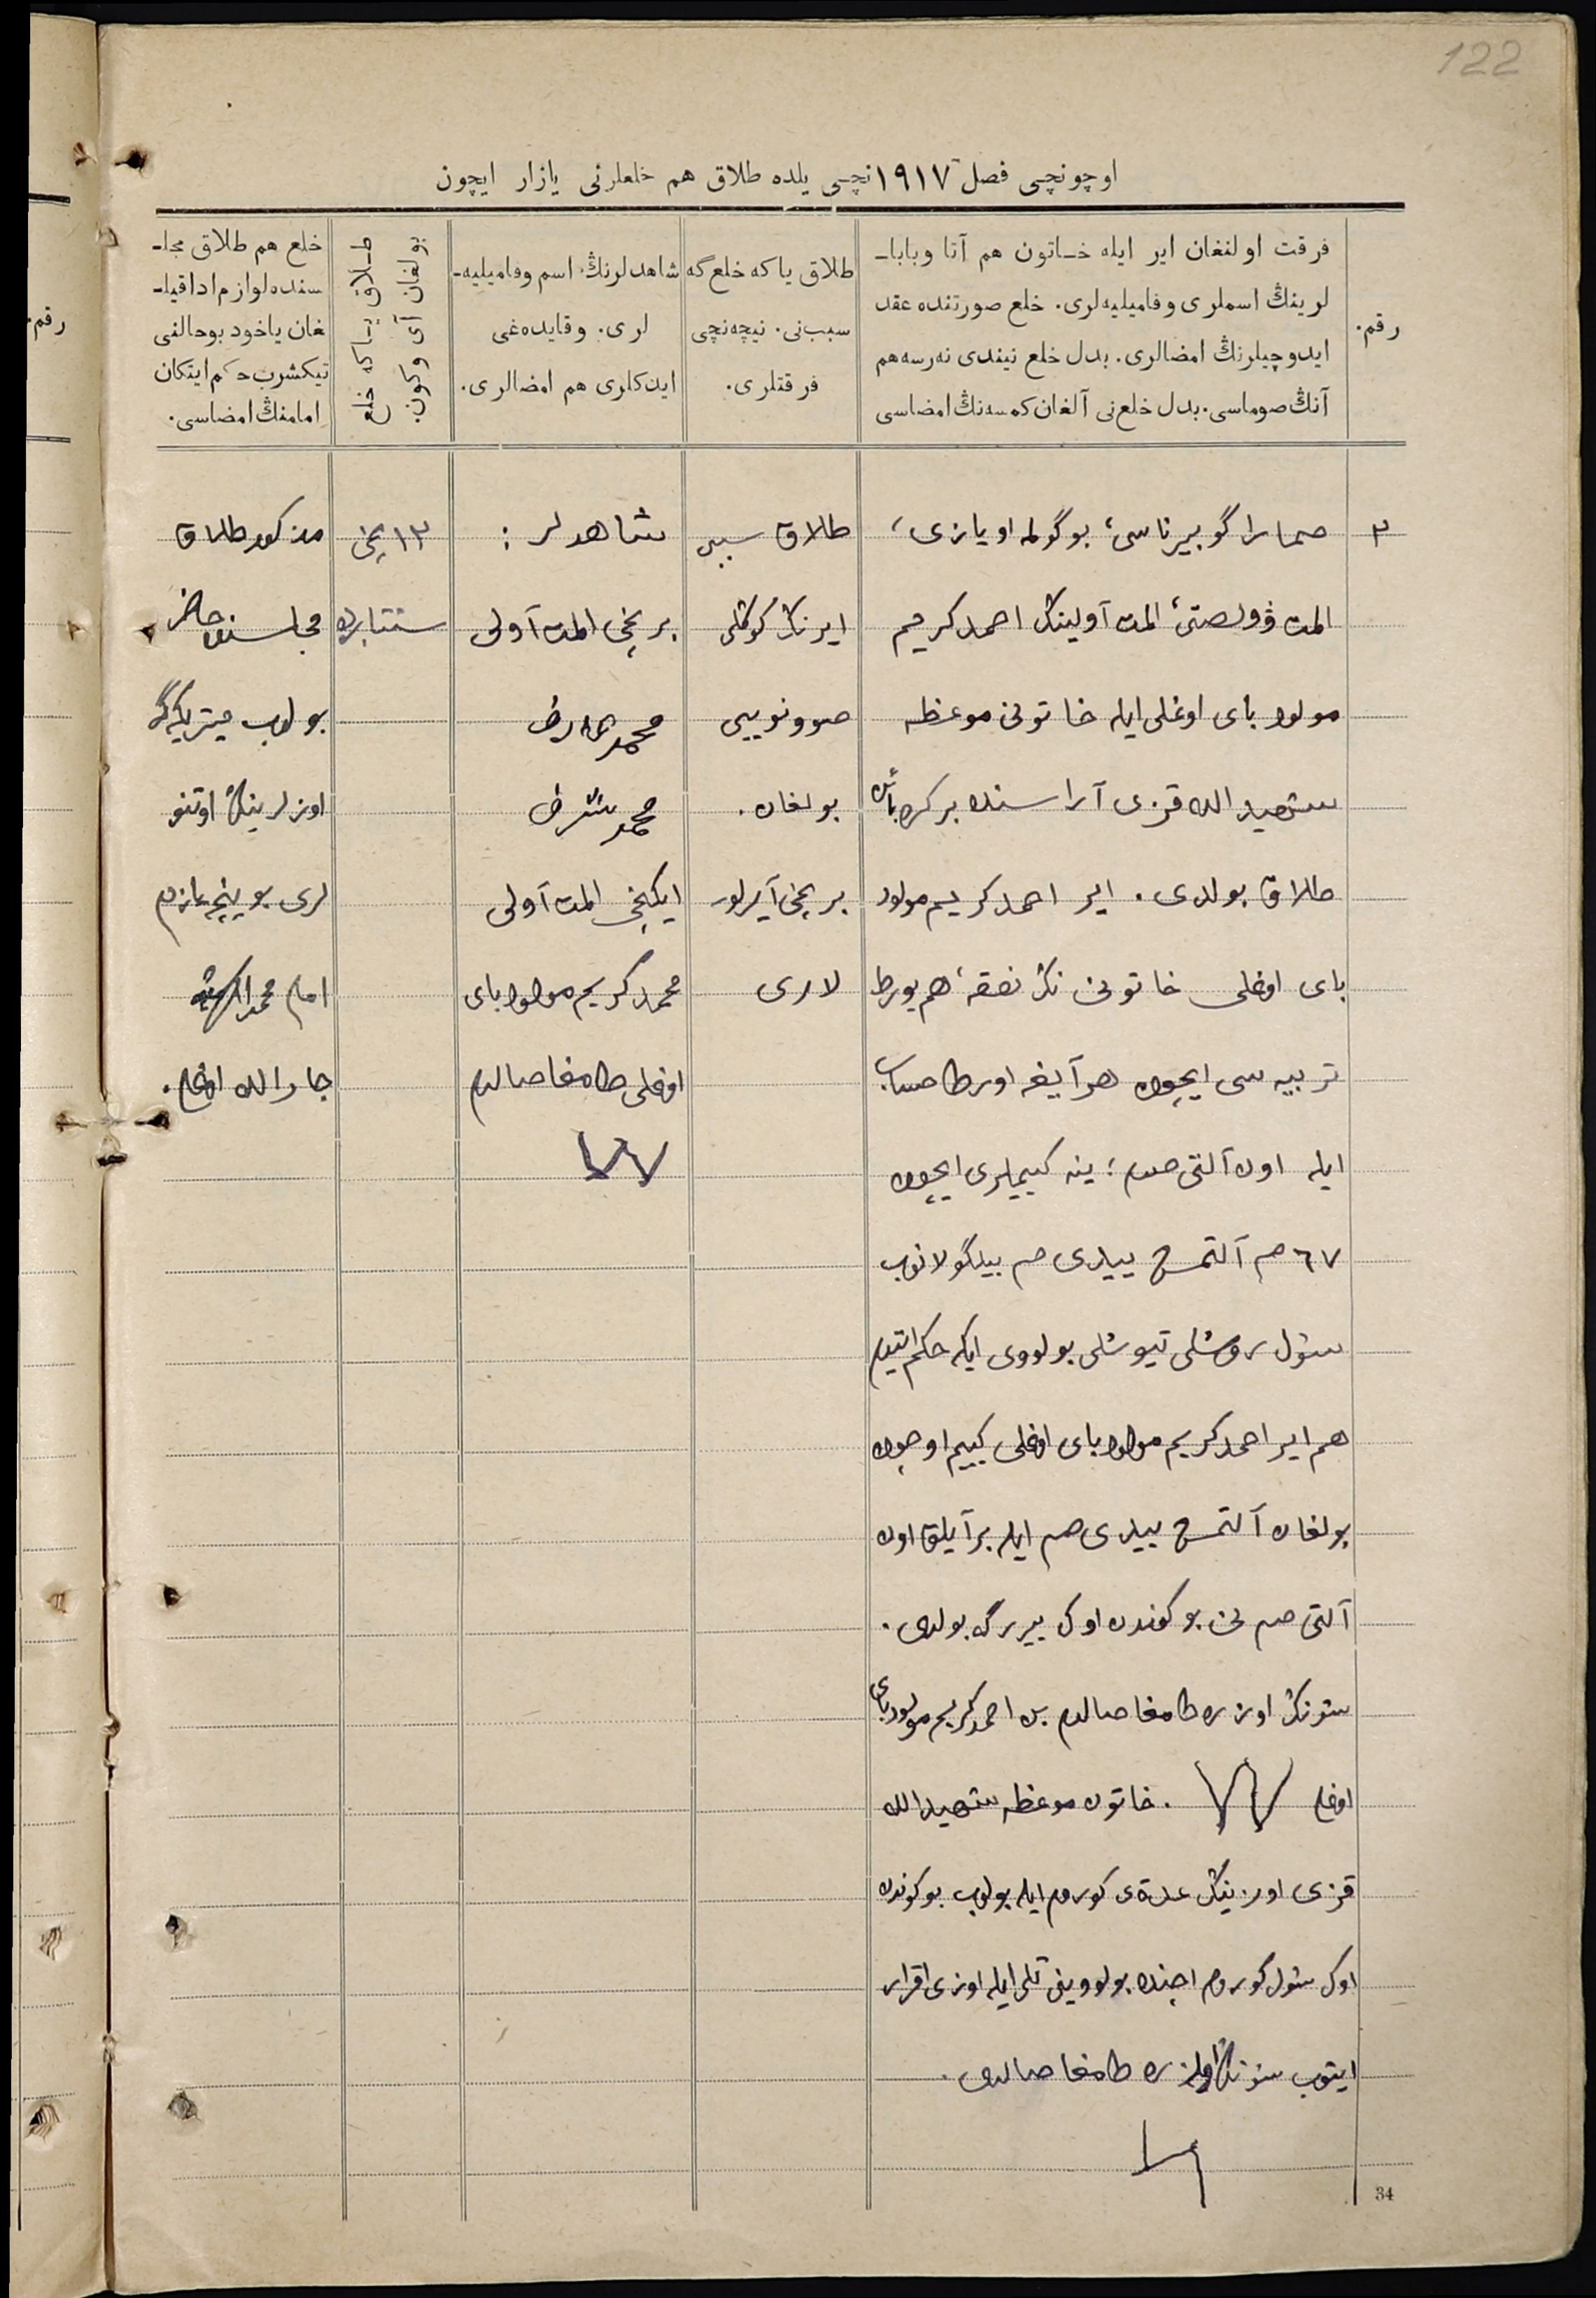 122
اوچونچی فصل ۱۹۱۷ نچی یلده طلاق هم خلعلرنی یازار ایچون
رقم.
فرقت اولنغان ایر ایله خاتون هم آتا وبابا-
لرینڭ اسملری وفامیلیه‌لری. خلع صورتنده عقد
ایدوچیلرنڭ امضالری. بدل خلع نیندی نه‌رسه هم
آنڭ صوماسی. بدل خلع‌نی آلغان کمسه‌نڭ امضاسی
طلاق یا که خلع گه
سبب‌نی. نیچه‌نچی
فرقتلری.
شاهدلرنڭ اسم وفامیلیه-
لری. وقایده‌غی
ایدکلری هم امضالری.
طلاق یاکه خلع
بولغان آی وکون.
خلع هم طلاق مجلـ
سنده لوازم اداقیلـ
غان یاخود بوحالنی
تیکشرب حکم ایتکان
امامنڭ امضاسی.
۲
صمارا گوبیرناسی، بوگولمه اویازی،
المت ڤولصتی، المت آولینڭ احمدکریم
مولود بای اوغلی ایله خاتونی موعظه
شهید الله قزی آراسنده بر کره بائن
طلاق بولدی. ایر احمدکریم مولود
بای اوغلی خاتونی نڭ نفقه، هم یورط
تربیه سی ایچون هر آیغه اورطا حساب
ایله اون آلتی صم؛ ینه کییملری ایچون
٦٧ صم آلتمش ییدی صم بیلگولانوب
شول روشلی تیوشلی بولووی ایله حکم ایتدم
هم ایر احمدکریم مولود بای اوغلی کییم اوچون
بولغان آلتمش ییدی صم ایله بر آیلق اون
آلتی صم نی بو کوندن اوک بیررگه بولدی.
شونڭ اوزره طامغا صالدم بن احمدکریم مولود بای
اوغلی . خاتون موعظه شهیدالله
قزی اوزینڭ عدةی کورم ایله بولوب بو کوندن
اوک شول کورم اچنده بولووینی تلی ایله اوزی اقرار
ایتوب شونڭ اوزره طامغا صالدی.
طلاق سببی
ایرنڭ کوڭلی
صوونویی
بولغان.
برنچی آیرلو-
لاری
شاهدلر:
برنچی المت آولی
محمد عارف
محمد شریف
ایکنچی المت آولی
محمدکریم مولود بای
اوغلی طامغا صالدم
۱۳ نچی
سنتابرده
مذکور طلاق
مجلسنده حاضر
بولوب میتریکه گه
اوزلرینڭ اوتنو
لری بوینچه یازدم
امام محمد
جارالله اوغلی.
34